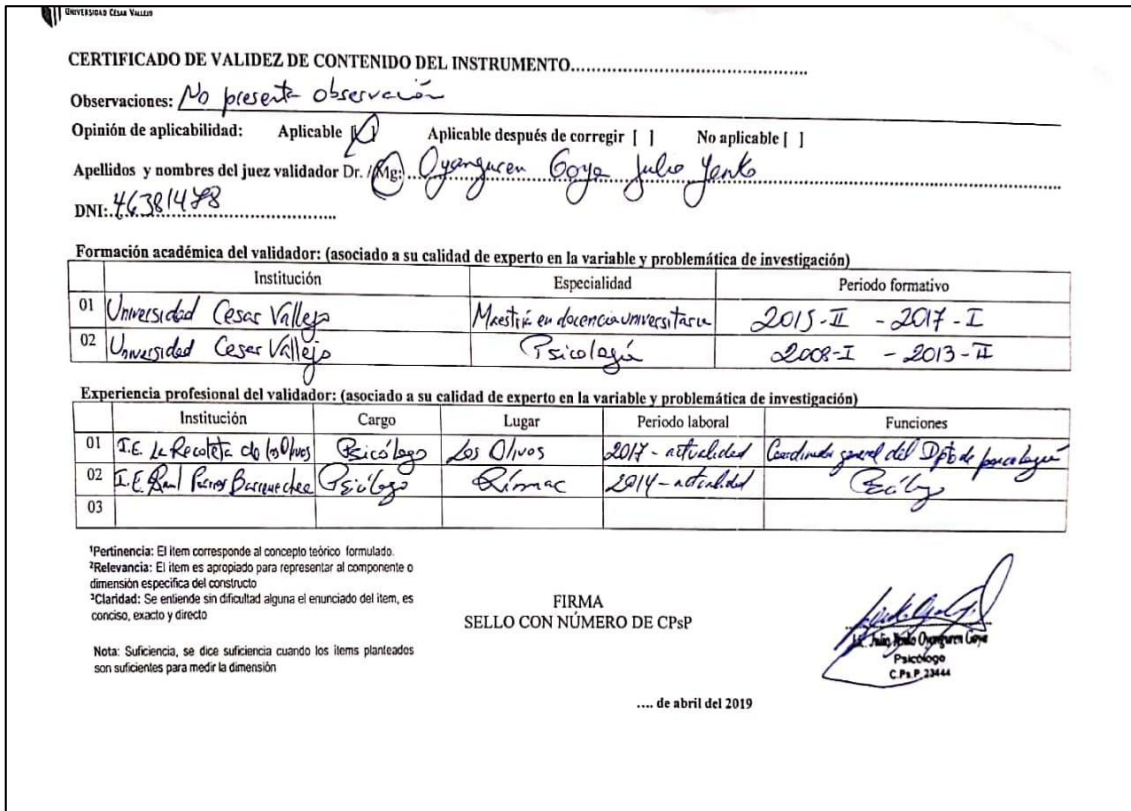 UNIVERSIDAD CÉSAR VALLEJO
CERTIFICADO DE VALIDEZ DE CONTENIDO DEL INSTRUMENTO..............................................
Observaciones: No presenta observación
Opinión de aplicabilidad: Aplicable [ ] Aplicable después de corregir [ ] No aplicable [ ]
Apellidos y nombres del juez validador Dr. / Mg: Oyanguren Goya Julio Yenko
DNI: 46381478
Formación académica del validador: (asociado a su calidad de experto en la variable y problemática de investigación)
Institución Especialidad Periodo formativo
01 Universidad Cesar Vallejo Maestría en docencia universitaria 2015-II - 2017-I
02 Universidad Cesar Vallejo Psicología 2008-I - 2013-II
Experiencia profesional del validador: (asociado a su calidad de experto en la variable y problemática de investigación)
Institución Cargo Lugar Periodo laboral Funciones
01 I.E. La Recoleta de los Olivos Psicólogo Los Olivos 2017 - actualidad Coordinador general del Dpto de psicología
02 I.E. Raul Porras Barrenechea Psicólogo Rímac 2014 - actualidad Psicólogo
03
¹Pertinencia: El item corresponde al concepto teórico formulado.
²Relevancia: El item es apropiado para representar al componente o
dimensión especifica del constructo
³Claridad: Se entiende sin dificultad alguna el enunciado del item, es
conciso, exacto y directo
Nota: Suficiencia, se dice suficiencia cuando los items planteados
son suficientes para medir la dimensión
FIRMA
SELLO CON NÚMERO DE CPsP
Julio Yenko Oyanguren Goya
Psicólogo
C.Ps.P. 23444
.... de abril del 2019